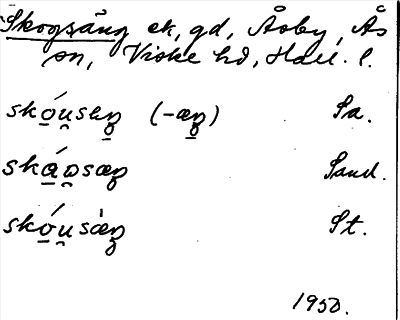 Skogsäng ek, gd, Åsby, Ås
sn, Viske hd, Hall. l.
skó̱u̯seŋ (-æŋ) Sa.
ská̱o̯sæŋ Sand.
skó̱u̯sàŋ St.
1950.